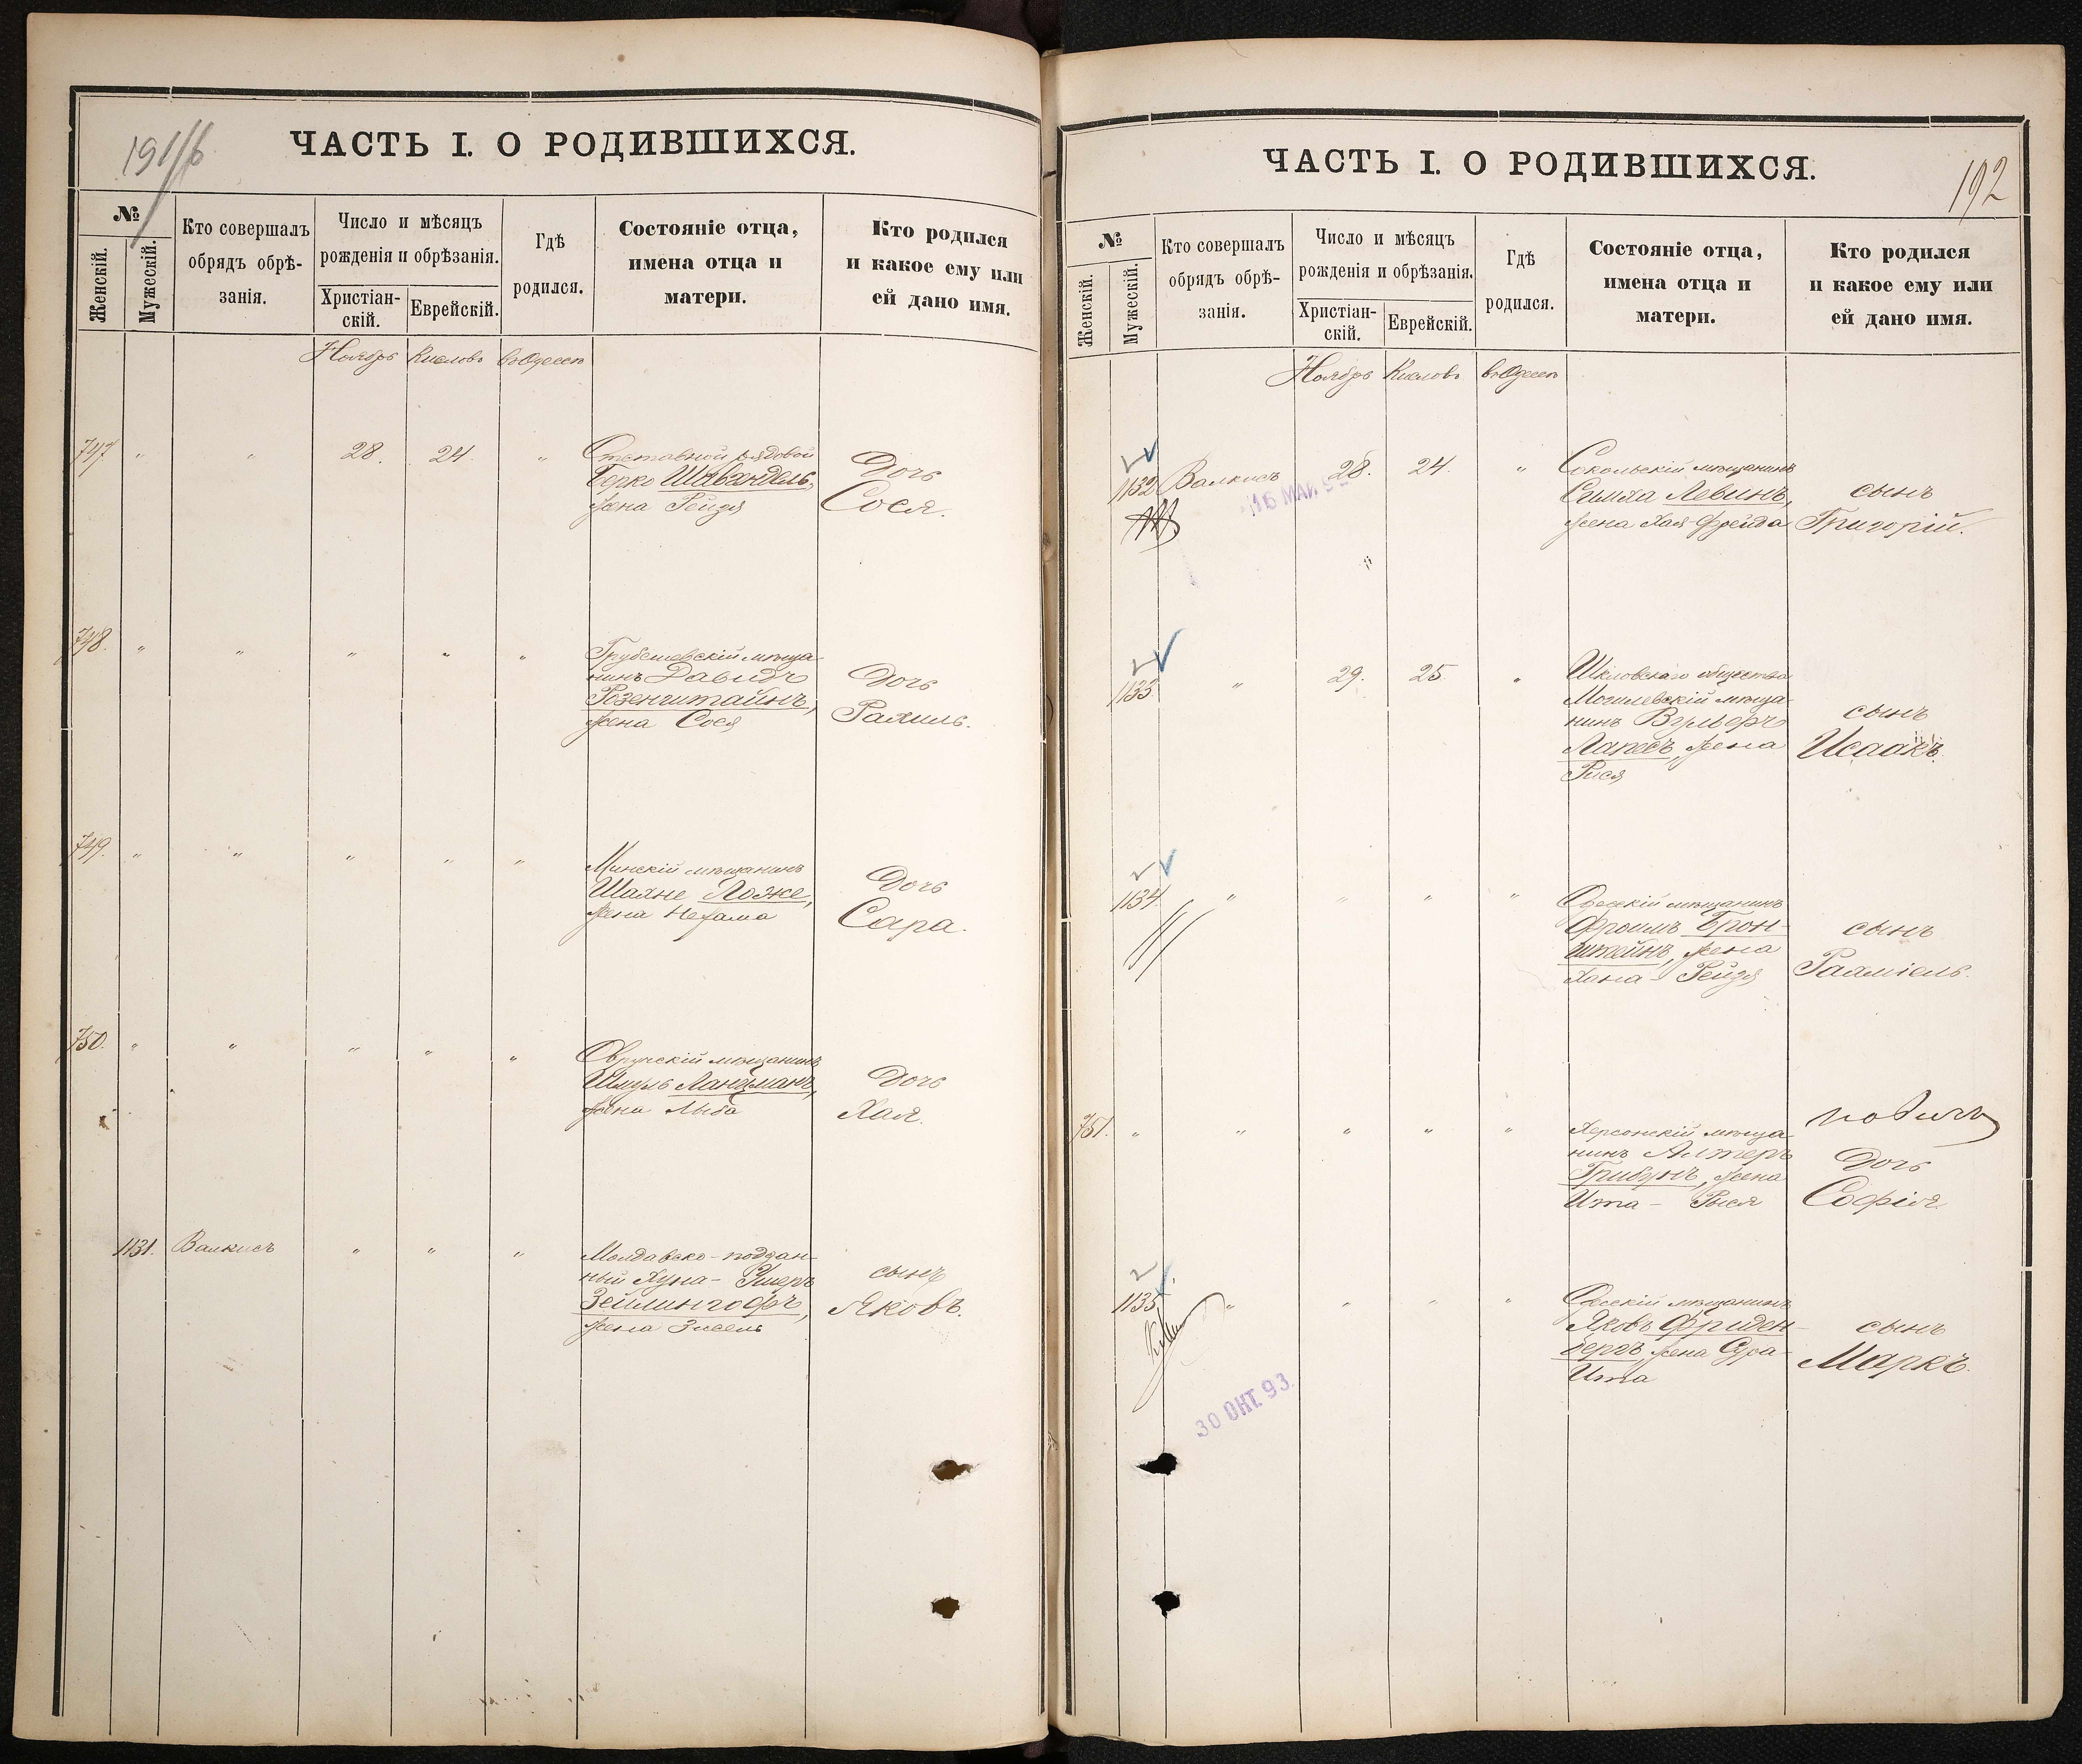 191/б
ЧАСТЬ I. О РОДИВШИХСЯ.
№
Женскій.
Мужескій.
Кто совершалъ
обрядъ обрѣ-
занія.
Число и мѣсяцъ
рожденія и обрѣзанія.
Христіан-
скій.
Еврейскій.
Гдѣ
родился.
Состояніе отца,
имена отца и
матери.
Кто родился
и какое ему или
ей дано имя.
Ноябрь Кислевъ въ Одессѣ
747 " " 28. 24 "
Отставной рядовой
Берко
жена Рейзя
Дочь
Сося.
748. " " " " "
Грубешовскій мѣща-
нинъ Давидъ
Розенштайнъ,
жена Сося
Дочь
Рахиль.
749. " " " " "
Минскій мѣщанинъ
Шахне Ложе,
жена Нехама
Дочь
Сара.
750. " " " " "
Овручскій мѣщанинъ
Шмуль Ландманъ,
жена Лыба
Дочь
Хая.
1131. Валкисъ " " "
Молдавско-поддан-
ный Хуна- Ушеръ
Зейлингофъ,
жена Зисель
сынъ
Яковъ.
ЧАСТЬ I. О РОДИВШИХСЯ.
192
№
Женскій.
Мужескій.
Кто совершалъ
обрядъ обрѣ-
занія.
Число и мѣсяцъ
рожденія и обрѣзанія.
Христіан-
скій.
Еврейскій.
Гдѣ
родился.
Состояніе отца,
имена отца и
матери.
Кто родился
и какое ему или
ей дано имя.
Ноябрь Кислевъ въ Одессѣ
1132 Валкисъ 28. 24. "
16 МАЙ 9
Сокольскій мѣщанинъ
Симха Левинъ,
жена Хая-Фрейда
сынъ
Григорій.
1133. " 29. 25 "
Шкловскаго общества
Могилевскій мѣща-
нинъ Вульфъ
Лапесъ, жена
Рися
сынъ
Исаакъ.
1134. " " " "
Одесскій мѣщанинъ
Фроимъ Брон-
штейнъ, жена
Хана- Рейзя
сынъ
Рахміель.
751. " " " " "
Херсонскій мѣща-
нинъ Алтеръ
Трибунъ, жена
Ита- Рыся
Дочь
Софія.
1135. " " " "
30 ОКТ. 93.
Одесскій мѣщанинъ
Яковъ Фриден-
бергъ, жена Сура-
Ита
сынъ
Маркъ.